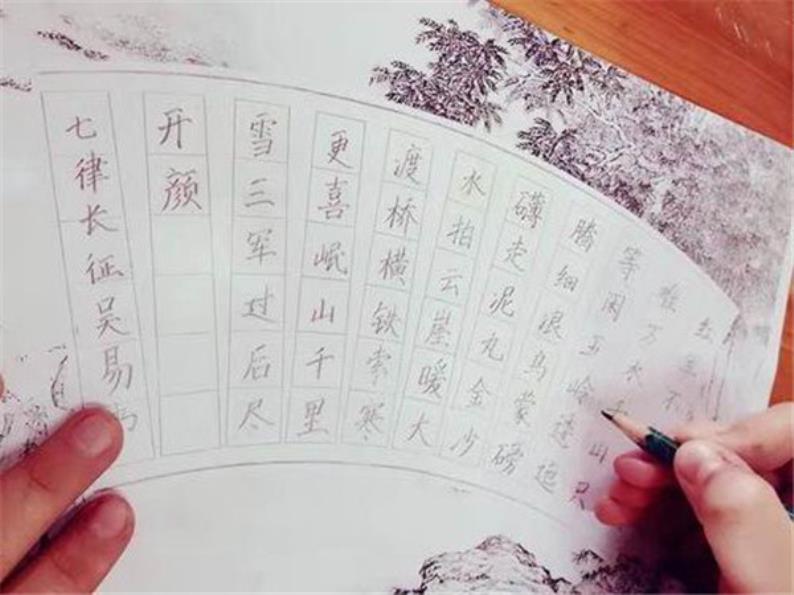 红军不
难万水千山只
等闲五岭逶迤
腾细浪乌蒙磅
礴走泥丸金沙
水拍云崖暖大
渡桥横铁索寒
更喜岷山千里
雪三军过后尽
开颜
七律长征吴易